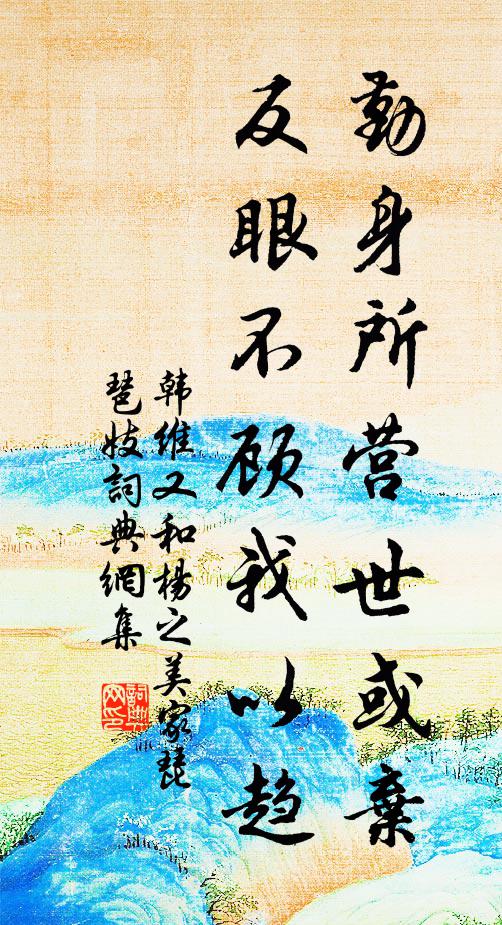 勤身所营世或棄
反眼不顾我以趋
韩维又和楊之美家琵
琶妓詞典網集
詞典网印